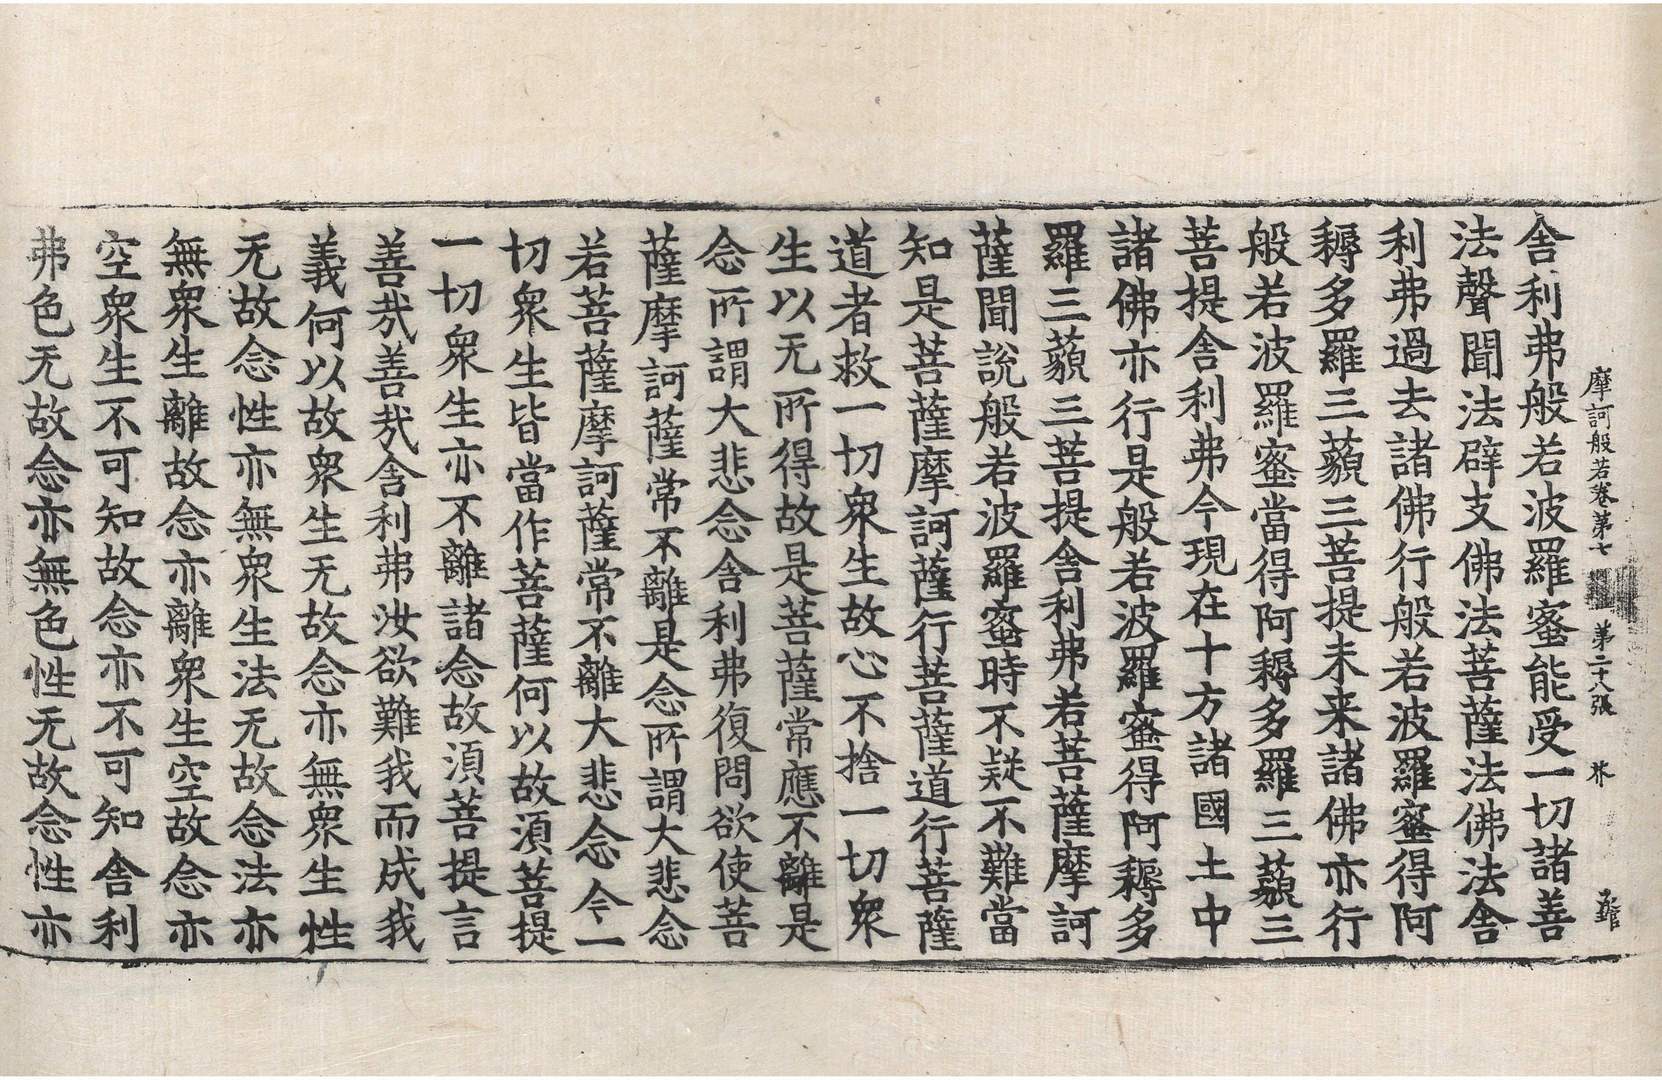 摩訶般若卷第七 第二十八張 芥
舎利弗般若波羅蜜能受一切諸善
法聲聞法辟支佛法菩薩法佛法舎
利弗過去諸佛行般若波羅蜜得阿
耨多羅三藐三菩提未来諸佛亦行
般若波羅蜜當得阿耨多羅三藐三
菩提舎利弗今現在十方諸國土中
諸佛亦行是般若波羅蜜得阿耨多
羅三藐三菩提舎利弗若菩薩摩訶
薩聞說般若波羅蜜時不疑不難當
知是菩薩摩訶薩行菩薩道行菩薩
道者救一切衆生故心不捨一切衆
生以无所得故是菩薩常應不離是
念所謂大悲念舎利弗復問欲使菩
薩摩訶薩常不離是念所謂大悲念
若菩薩摩訶薩常不離大悲念今一
切衆生皆當作菩薩何以故須菩提
一切衆生亦不離諸念故須菩提言
善㢤善㢤舎利弗汝欲難我而成我
義何以故衆生无故念亦無衆生性
无故念性亦無衆生法无故念法亦
無衆生離故念亦離衆生空故念亦
空衆生不可知故念亦不可知舎利
弗色无故念亦無色性无故念性亦